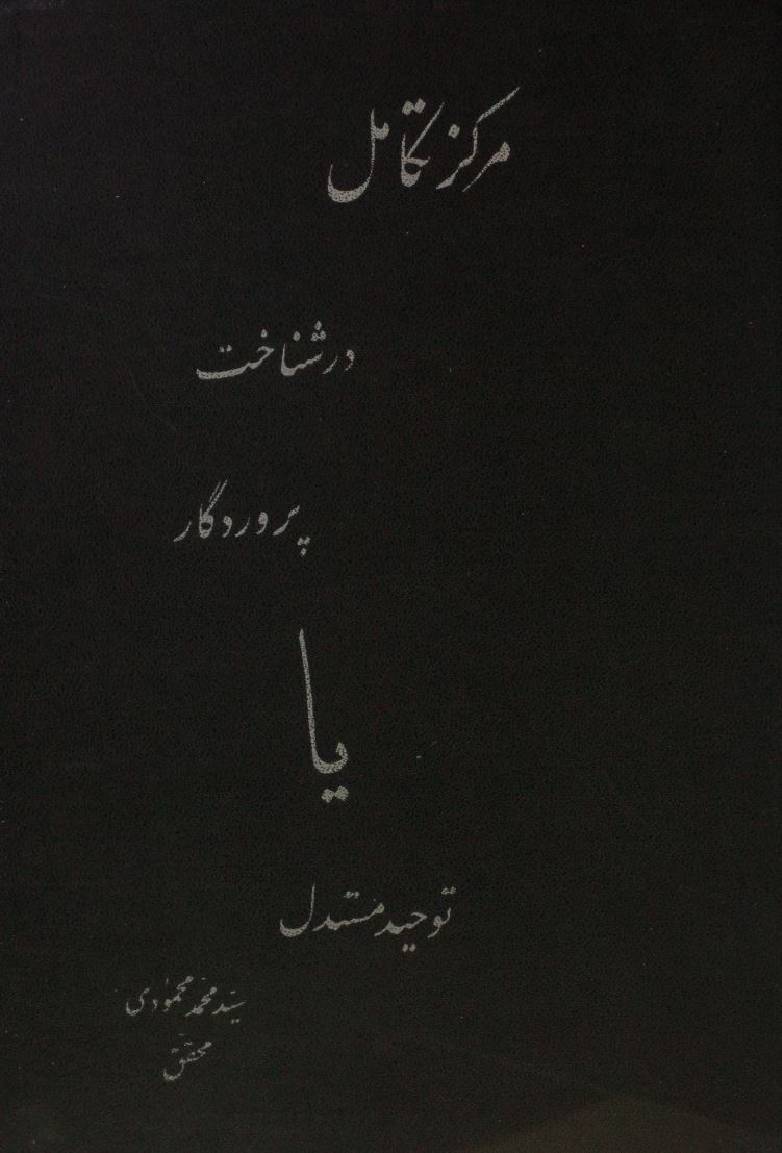 مرکز تکامل
در شناخت
پروردگار
یا
توحید مستدل
سید محمد محمودی
محقق